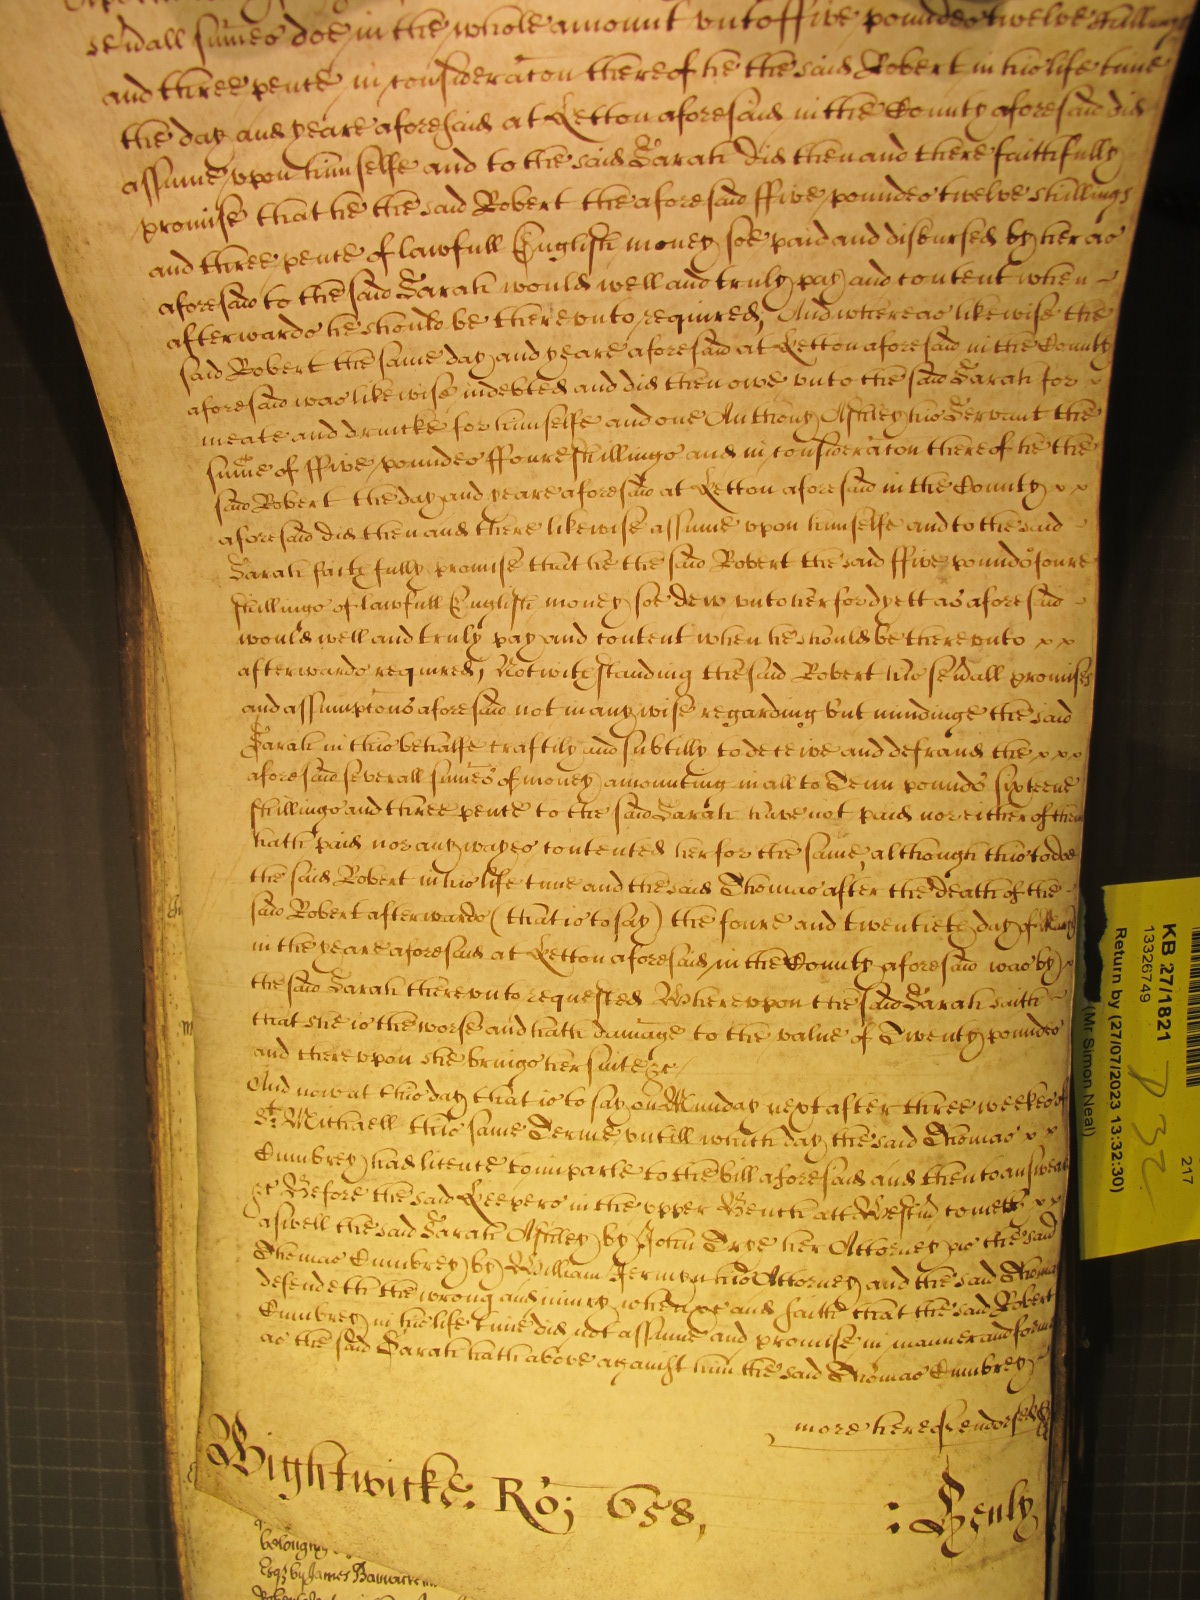 severall sumes doe in the whole amount vnto ffive poundes twelve shillings
and three pence in consideracon thereof he the said Robert in his life time
the day and yeare aforesaid at Letton aforesaid in the County aforesaid did
assume vpon himselfe and to the said Sarah did then and there faithfully
promise that he the said Robert the aforesaid ffive poundes twelve shillings
and three pence of lawfull English money soe paid and disbursed by her as
aforesaid to the said Sarah would well and truly pay and content when
afterwards he should be therevnto required, And whereas likewise the
said Robert the same day and yeare aforesaid at Letton aforesaid in the County
aforesaid was likewise indebted and did then owe vnto the said Sarah for
meate and drincke for himselfe and one Anthony Astley his Servant the
sume of ffive poundes ffoure shillings and in consideracon thereof he the
said Robert the day and yeare aforesaid at Letton aforesaid in the County x x
aforesaid did then and there likewise assume vpon himselfe and to the said
Sarah faithfully promise that he the said Robert the said ffive pounds foure
shillings of lawfull English money soe dew vnto her for dyett as aforesaid
would well and truly pay and content when he should be therevnto x x
afterwards required, Notwithstanding the said Robert his severall promises
and assumptons aforesaid not in any wise regarding but mindinge the said
Sarah in this behalfe craftily and subtilly to deceive and defraud the x x x
aforesaid severall sumes of money amounting in all to Tenn pounds sixteene
shillings and three pence to the said Sarah have not paid nor either of them
hath paid nor any wayes contented her for the same, although this to doe
the said Robert in his life time and the said Thomas after the death of the
said Robert afterwards (that is to say) the foure and twentieth day of
in the yeare aforesaid at Letton aforesaid in the County aforesaid was by x
the said Sarah therevnto requested Wherevpon the said Sarah saith
that she is the worse and hath damage to the value of Twenty poundes
and therevpon she brings her suite &c
And now at this day that is to say on Munday next after three weekes of
St. Michaell this same Terme vntill which day the said Thomas x x
Cumbrey had licence to imparle to the bill aforesaid and then to answeare
&c Before the said Keepers in the vpper Bench att Westm cometh x x
aswell the said Sarah Astley by John Trye her Attorney as the said
Thomas Cumbrey by William Jermyn his Attorney and the said Thomas
defendeth the wrong and iniury when &c and saith that the said Robert
Cumbrey in his life time did not assume and promise in manner and forme
as the said Sarah hath above against him the said Thomas Cumbrey
more hereof endorsed
Wightwicke. Ro; 658,
: Henly
belonging
Esqr by James
KB 27/1821
13326749
Return by (27/07/2023 13:32:30)
(Mr Simon Neal)
217